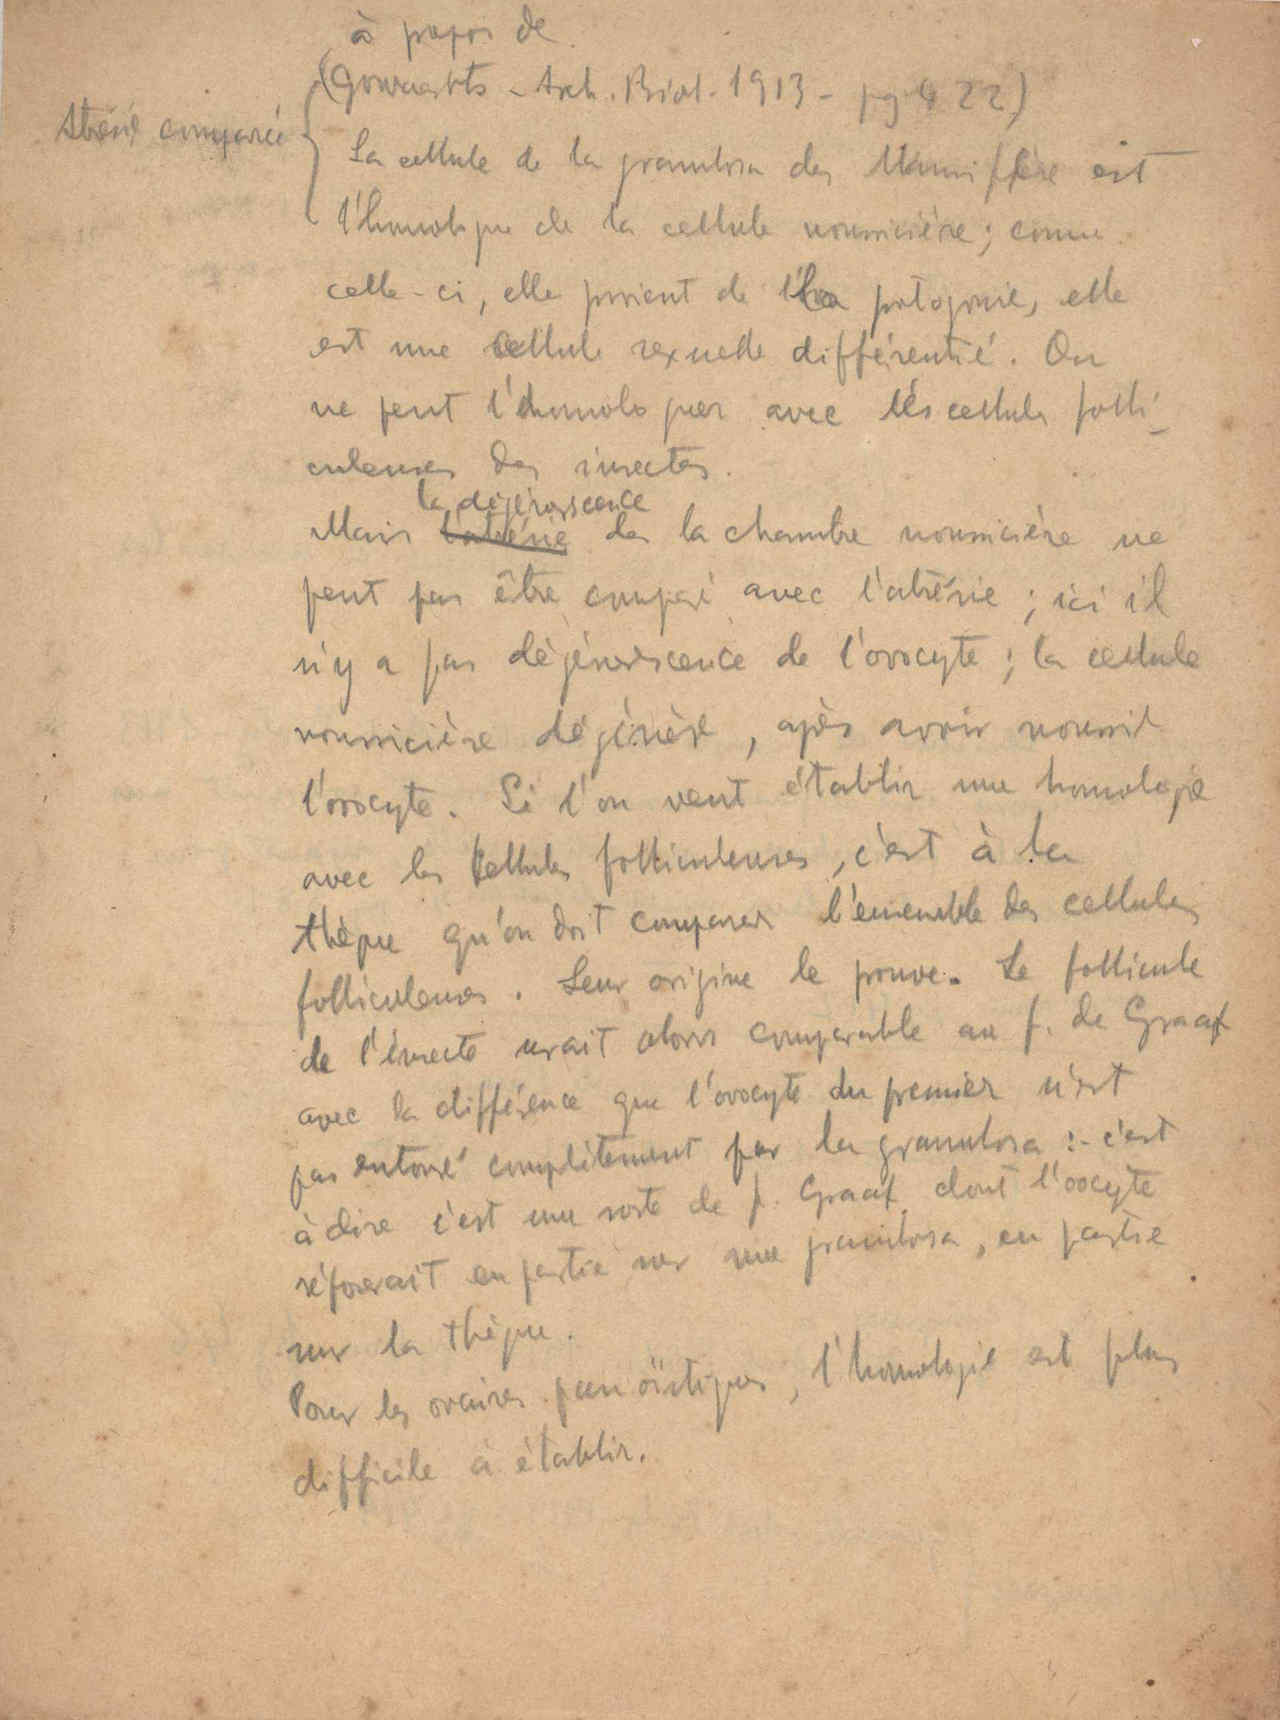 à propos de
(Govaerts - Arch. Biol. 1913 - pg 422)
Atrésie comparée
La cellule de la granulosa des Mammifère est
l'homologue de la cellule nourricière; comme
celle-ci, elle provient de la protogonie, elle
est une cellule sexuelle différentié. On
ne peut l'homologuer avec les cellules folli-
culeuses des insectes.
la dégénérescence
Mais l'atrésie de la chambre nourricière ne
peut pas être comparé avec l'atrésie; ici il
n'y a pas dégénérescence de l'ovocyte; la cellule
nourricière dégénère, après avoir nourrit
l'ovocyte. Si l'on veut établir une homologie
avec les cellules folliculeuses, c'est à la
thèque qu'on doit comparer l'ensemble des cellules
folliculeuses. Leur origine le prouve. Le follicule
de l'insecte serait alors comparable au f. de Graaf
avec la différence que l'ovocyte du premier n'est
pas entouré complètement par la granulosa :- c'est
à dire c'est une sorte de f. Graaf dont l'oocyte
réposerait en partie sur une granulosa, en partie
sur la thèque.
Pour les ovaires panoïstiques, l'homologie est plus
difficile à établir.